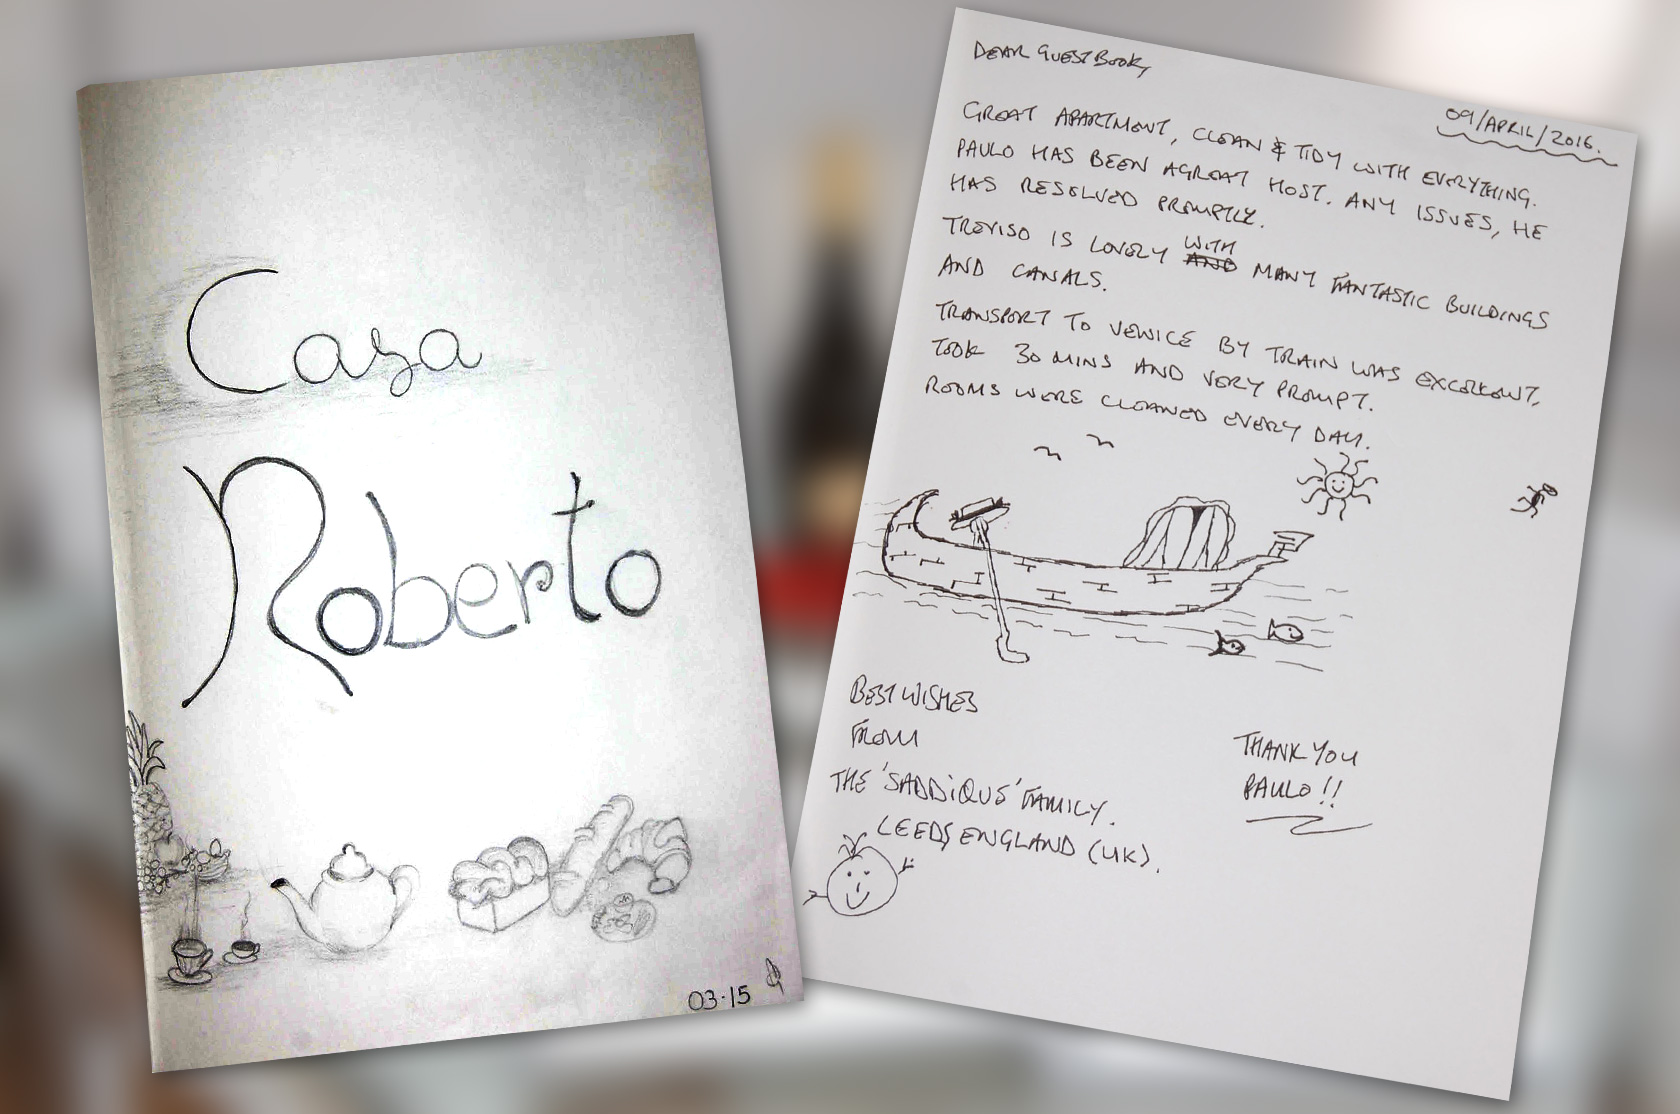 Casa
Roberto
03·15
DEAR GUESTBOOK,
09/APRIL/2016.
GREAT APARTMENT, CLEAN & TIDY WITH EVERYTHING.
PAULO HAS BEEN A GREAT HOST. ANY ISSUES, HE
HAS RESOLVED PROMPTLY.
TREVISO IS LOVELY WITH MANY FANTASTIC BUILDINGS
AND CANALS.
TRANSPORT TO VENICE BY TRAIN WAS EXCELLENT,
TOOK 30 MINS AND VERY PROMPT.
ROOMS WERE CLEANED EVERY DAY.
BEST WISHES
FROM
THE 'SADDIQUE' FAMILY.
LEEDS, ENGLAND (UK).
THANK YOU
PAULO!!